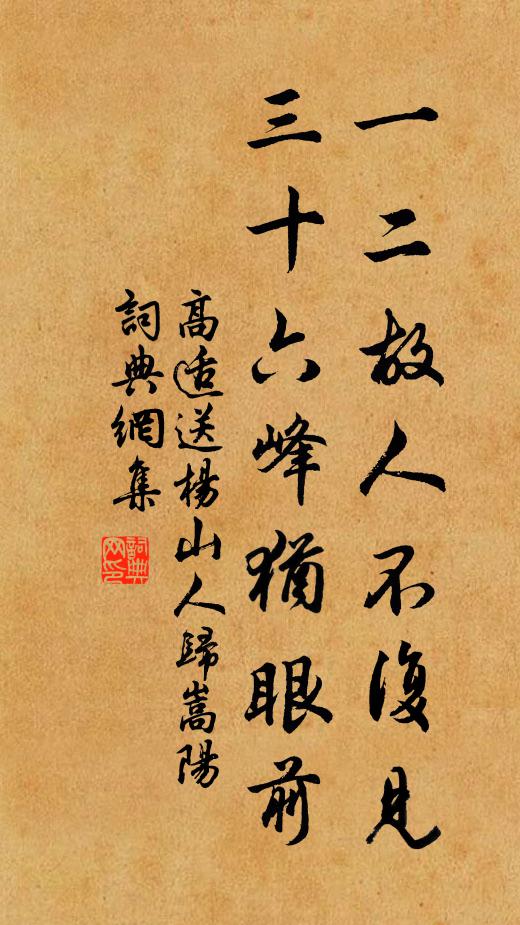 一二故人不復見
三十六峰猶眼前
高适送楊山人歸嵩陽
詞典網集
詞典網印